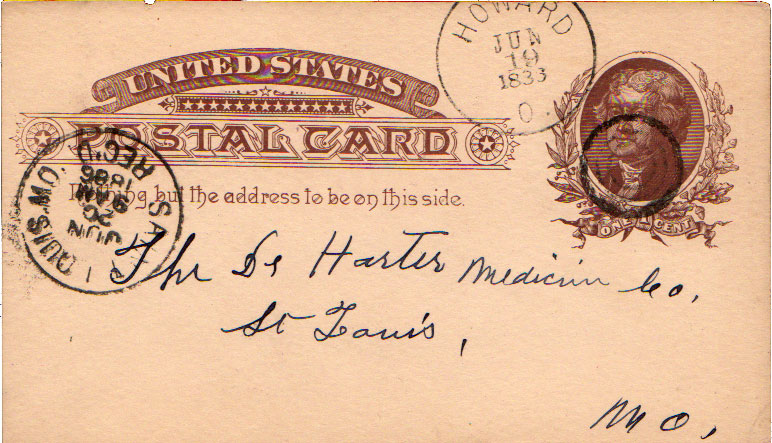 HOWARD
JUN
19
1833
O
UNITED STATES
POSTAL CARD
Nothing but the address to be on this side.
ONE CENT
SAINT LOUIS.MO.
REC'D
JUN
20
9AM
1886
The Dr Harter Medicin Co.
St Louis,
Mo,